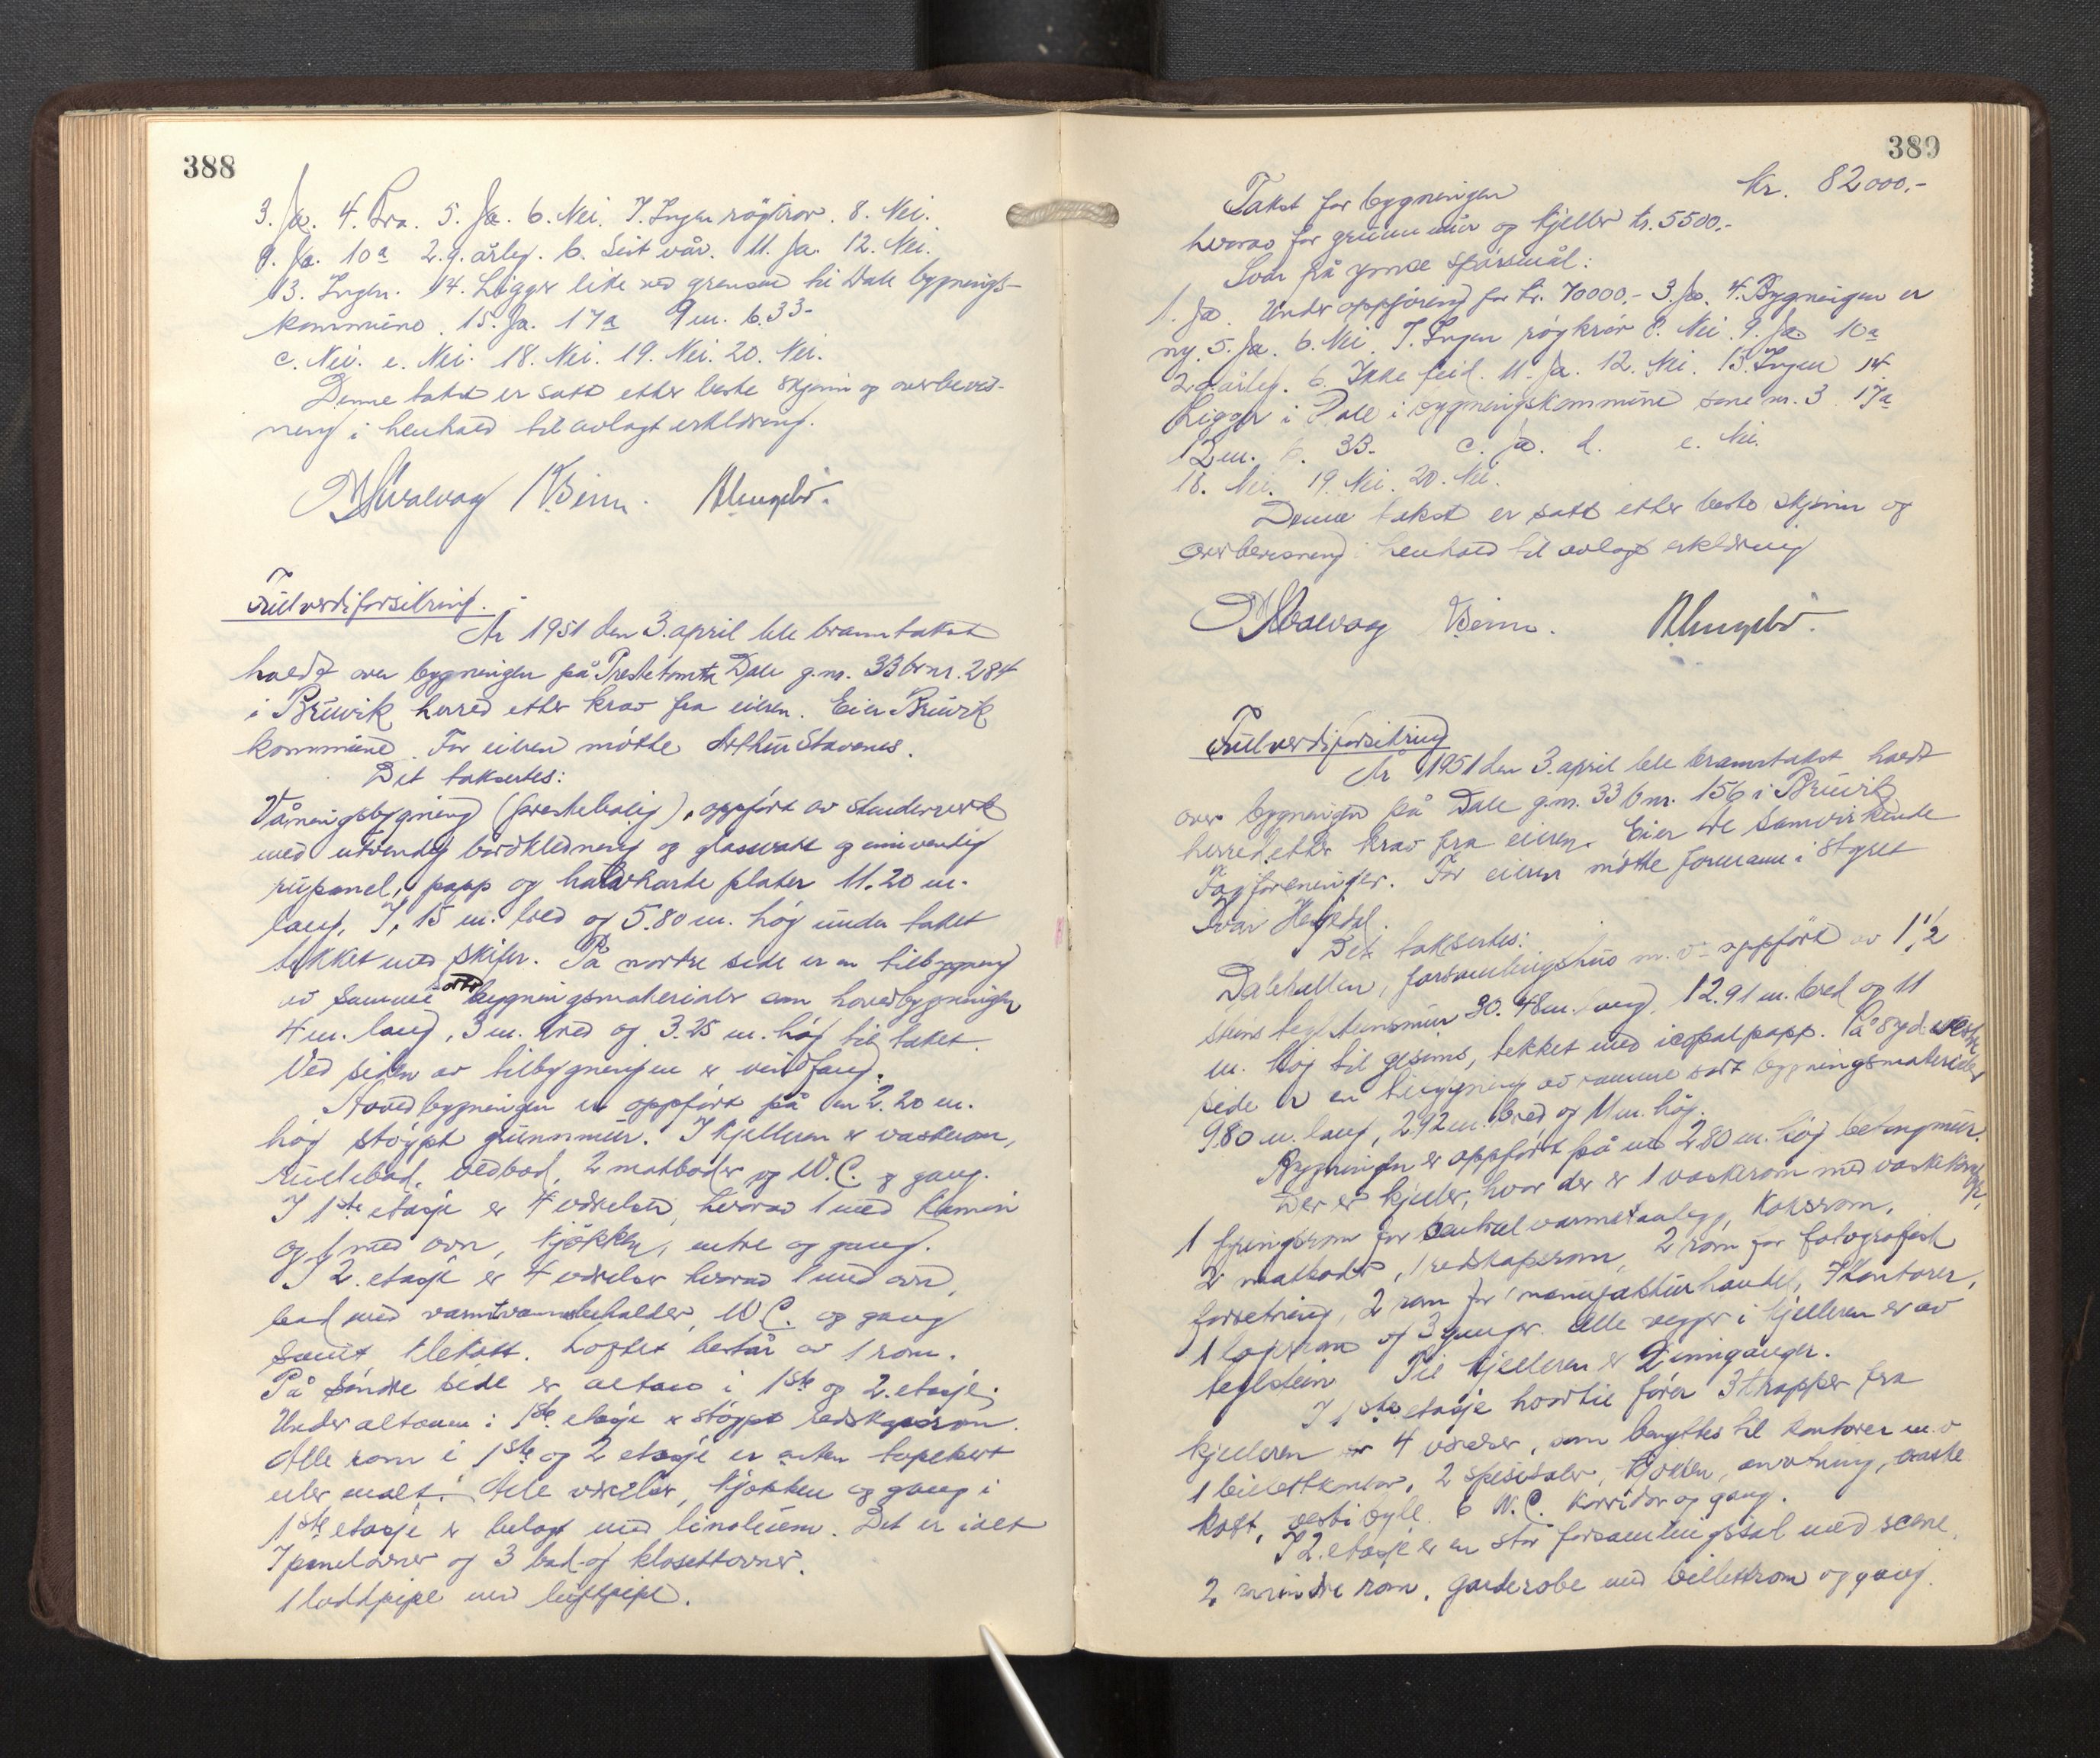 388
3. Ja. 4. Bra. 5. Ja. 6. Nei. 7. Ingen rögkrör. 8. Nei.
9. Ja. 10a 2.g. årleg. b. Sist vår. 11. Ja. 12. Nei.
13. Ingen. 14. Ligger like ved grensen til Dale bygnings-
kommune. 15. Ja. 17a 9 m. b. 33-
c. Nei. e. Nei. 18. Nei. 19. Nei. 20. Nei.
Denne takst er satt etter beste skjönn og overbevis-
ning i henhold til avlagt erklæring.
Fullverdiforsikring.
År 1951 den 3. april ble branntakst
holdt over bygningen på Prestetomta Dale g.nr. 33 br nr. 284
i Bruvik herred etter krav fra eieren. Eier Bruvik
kommune. For eieren mötte Arthur Stavenes.
Det taksertes:
Våningsbygning (prestebolig), oppfört av stenderverk
med utvendig bordkledning og glassvatt og innvendig
rupanel, papp og halvharde plater 11.20 m.
lang, 7,15 m. bred og 5.80 m. höy under taket
tekket med skifer. På nordre side er en tilbygning
av samme sort bygningsmaterialer som hovedbygningen
4 m. lang, 3 m. bred og 3.25 m. höy til taket.
Ved siden av tilbygningen er vindfang.
Hovedbygningen er oppfört på en 2.20 m.
höy stöypt grunnmur. I kjelleren er vaskerom,
rullebod, vedbod, 2 matboder og W.C. og gang.
I 1ste etasje er 4 værelser, hvorav 1 med kamin
og 1 med ovn, kjökken, entre og gang.
I 2. etasje er 4 værelser hvorav 1 med ovn,
bad med varmtvannsbeholder, W.C. og gang
samt klekott. Loftet består av 1 rom.
På söndre side er altan i 1ste og 2. etasje.
Under altanen i 1ste etasje er stöypt redskapsrom.
Alle rom i 1ste og 2 etasje er enten tapetsert
eller malt. Alle værelser, kjökken og gang i
1ste etasje er belagt med linoleum. Det er ialt
7 panelovner og 3 bad- og klosettovner.
1 loddpipe med luftpipe.
389
Takst for bygningen kr. 82000,-
hvorav for grunnmur og kjeller kr. 5500,-
Svar på ymse spörsmål:
1. Ja. Under oppföring for kr. 70000,- 3. Ja. 4. Bygningen er
ny. 5. Ja. 6. Nei. 7. Ingen rögkrör 8. Nei. 9. Ja. 10a
2.g. årleg. b. Ikke feid. 11. Ja. 12. Nei. 13. Ingen 14.
Ligger i Dale i bygningskommune sone nr. 3 17a
12 m. b. 33- c. Ja. d. e. Nei.
18. Nei. 19. Nei. 20. Nei.
Denne takst er satt etter beste skjönn og
overbevisning i henhold til avlagt erklæring
Fullverdiforsikring
År 1951 den 3. april ble branntakst holdt
over bygningen på Dale g.nr. 33 b nr. 156 i Bruvik
herred etter krav fra eieren. Eier De Samvirkende
Fagforeninger. For eieren mötte formann i styret
Ivar
Det taksertes:
Dalehallen, forsamlingshus m. v. oppfört av 1 1/2
steins teglsteinsmur 30.48 m. lang, 12.91 m. bred og 11
m. höy til gesims, tekket med icopalpapp. På syd-vestre
side er en tilbygning av samme sort bygningsmaterialer
9.80 m. lang, 2.92 m. bred, og 11 m. höy.
Bygningen er oppfört på en 2.80 m. höy betongmur.
Der er kjeller, hvor der er 1 vaskerom med vaskekomfyr,
1 fyringsrom for sentralvarmeanlegg, koksrom,
2 matboder, 1 redskapsrom, 2 rom for fotografisk
forretning, 2 rom for manufakturhandel, 7 kontorer,
1 lagerrom og 3 ganger. Alle vegger i kjelleren er av
teglstein Til kjelleren er 2 innganger.
I 1ste etasje hvortil förer 3 trapper fra
kjelleren er 4 værelser, som benyttes til kontorer m. v
1 billettkontor, 2 spisesaler, kjökken, anretning, vaske
kott, vestibyle. 6 W.C. korridor og gang.
I 2. etasje er en stor forsamlingssal med scene,
2 mindre rom, garderobe med billettrom og gang.